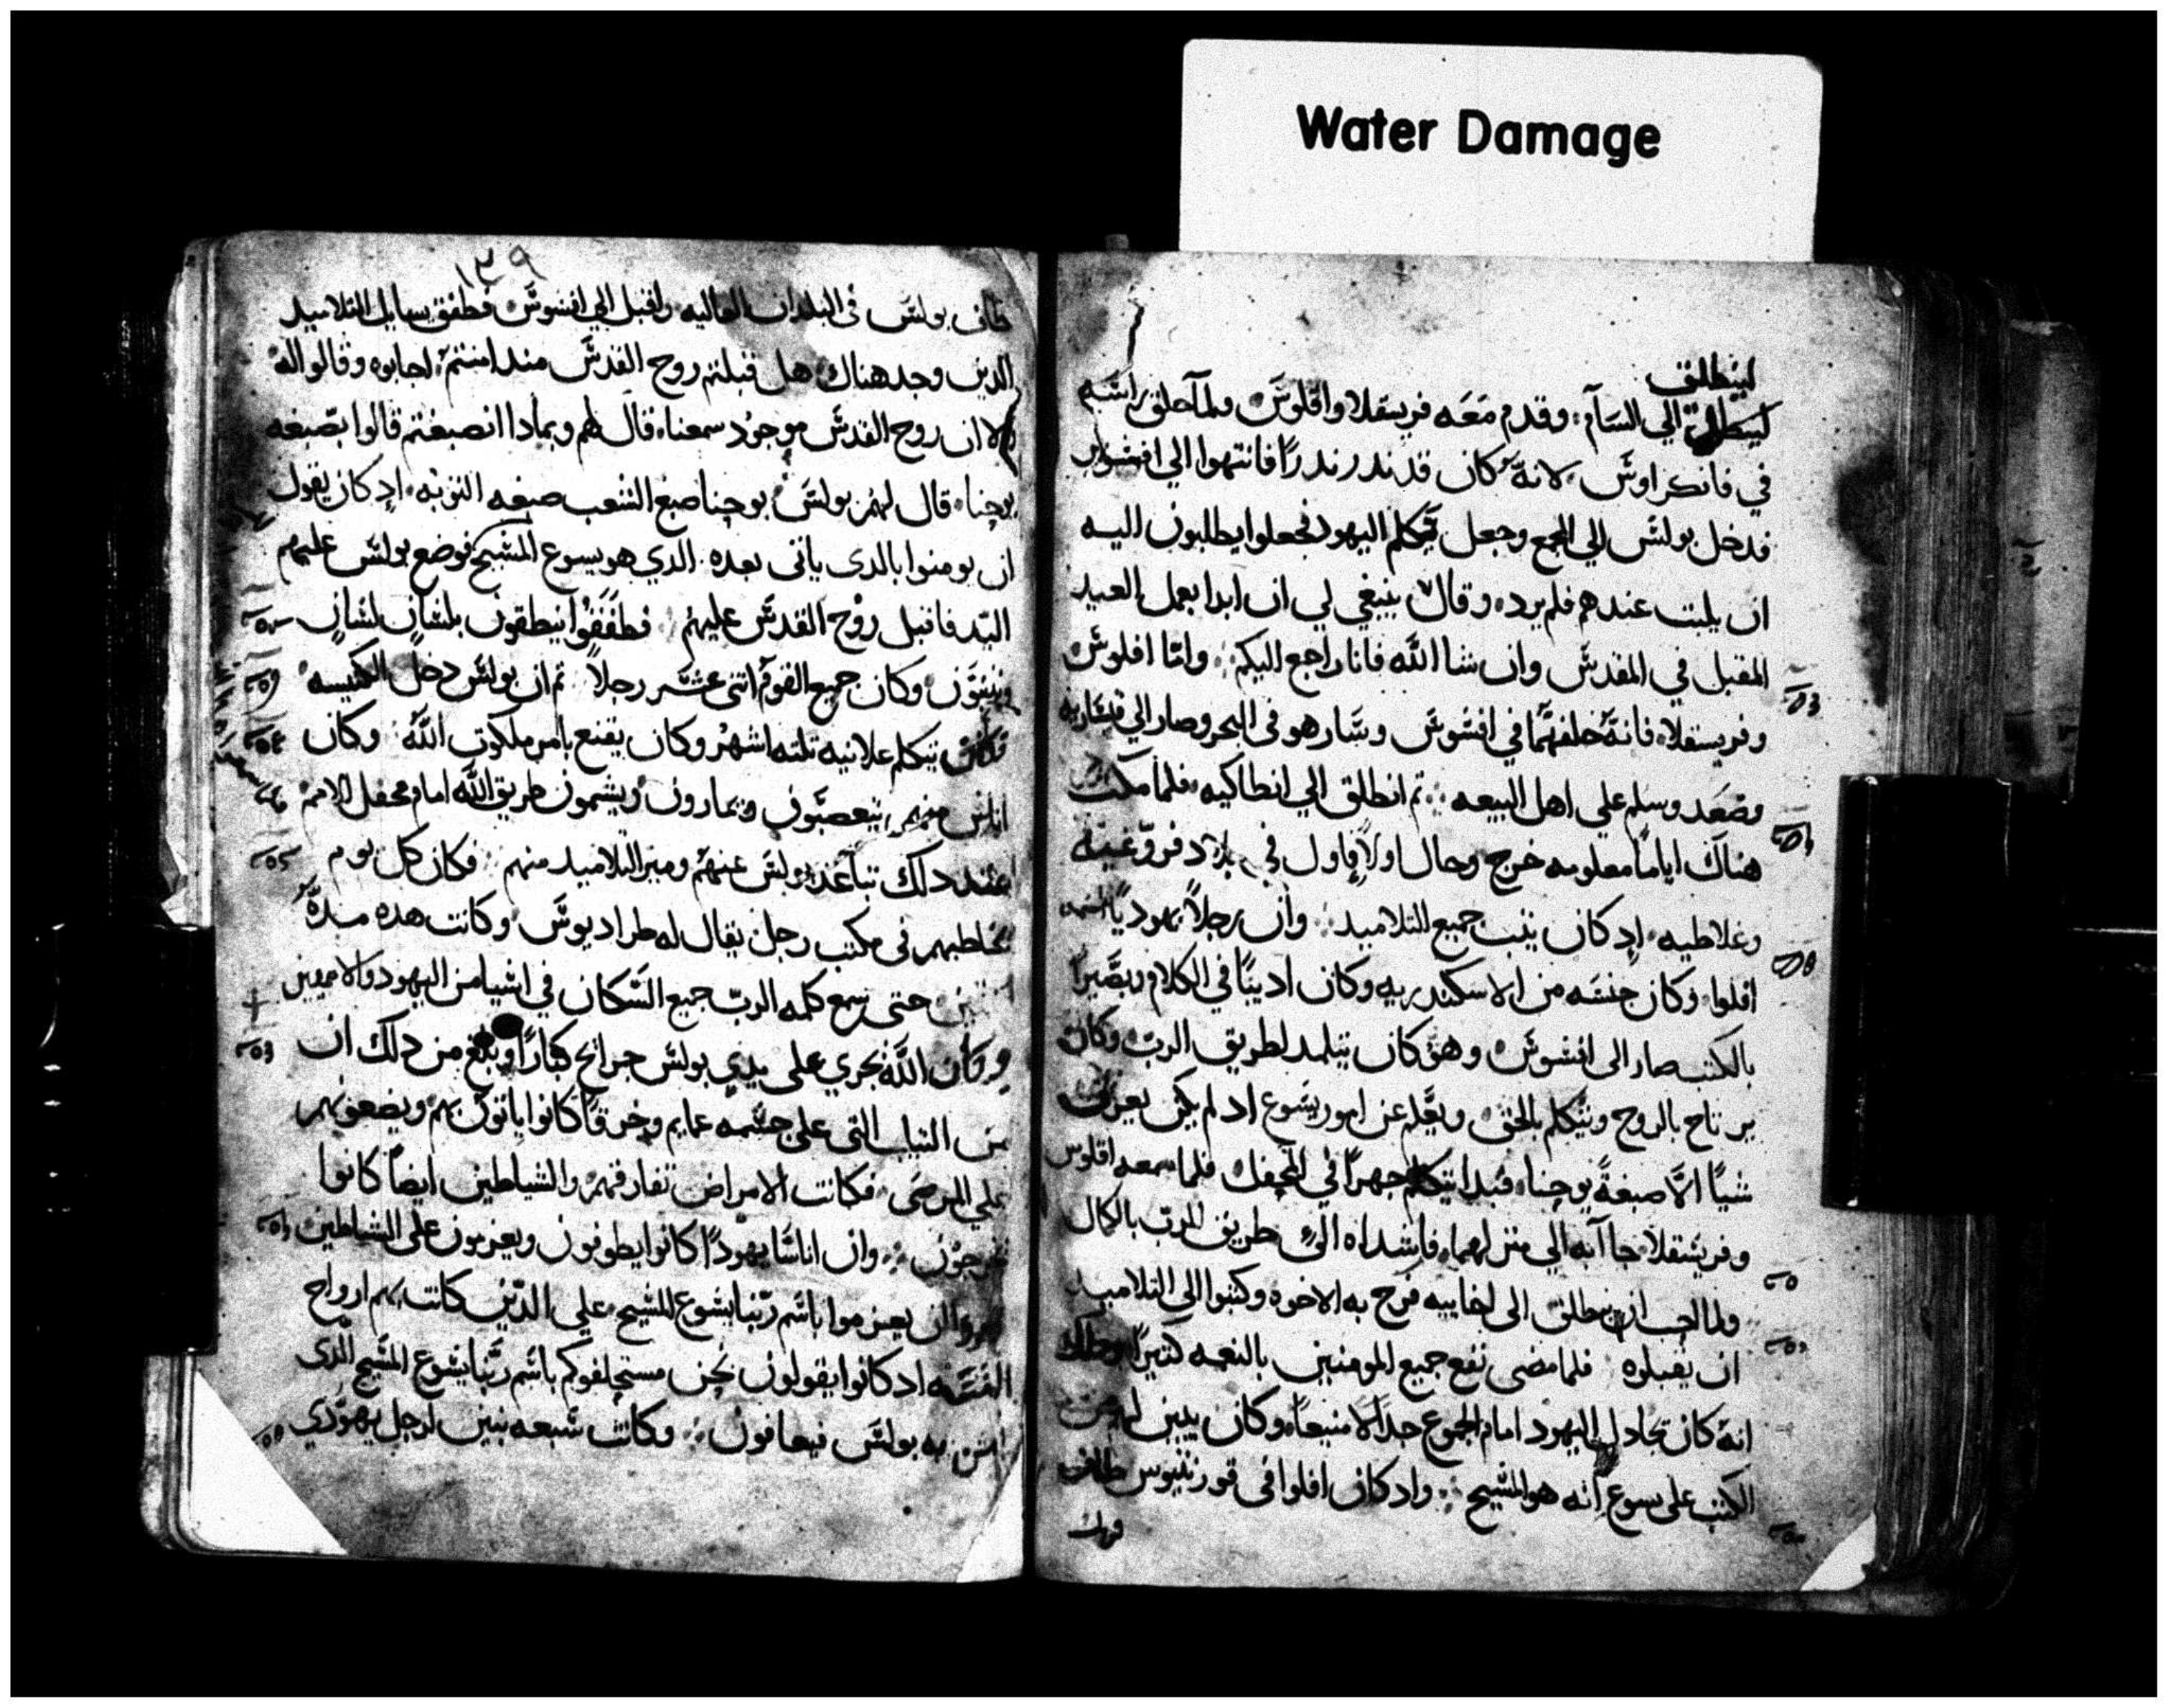 Water Damage
لينطلق
لينطلق الي السآم وقدم معه فريسقلا واقلوس ولما حلق راسه
في فانكراوس لانه كان قد ندر ندرا فانتهوا الي افسوس
فدخل بولس الي المجمع وجعل يتكلم اليهود فجعلوا يطلبون اليه
ان يلبت عندهم فلم يرد وقال ينبغي لي ان ابدا بعمل العيد
المقبل في المقدس وان شا الله فانا راجع اليكم واما اقلوس
وفريسقلا فانه خلفهما في افسوس وسار هو في البحر وصار الي قيساريه
وصعد وسلم علي اهل البيعه تم انطلق الي انطاكيه فلما مكت
هناك اياما معلومه خرج وجال اولا فاول في بلاد فروغيه
وغلاطيه ادكان يتبت جميع التلاميد وان رجلا يهوديا اسمه
افلوا وكان جنسه من الاسكندريه وكان اديبا في الكلام وبصيرا
بالكتب صار الي افسوس وهو كان يتلمد لطريق الرب وكان
يرتاح بالروح ويتكلم بالحق ويعلم عن امور يسوع اد لم يكن يعرف
شيا الا صبغة يوحنا فبدا يتكلم جهرا في المحفل فلما سمعه اقلوس
وفريسقلا جا آبه الي منزلهما فارشداه الي طريق الرب بالكمال
ولما احب ان ينطلق الي اخاييه فرح به الاخوه وكتبوا الي التلاميد
ان يقبلوه فلما مضي نفع جميع المومنين بالنعمه كتيرا ودلك
انه كان يجادل اليهود امام الجموع جدالا منيعا وكان يبين لهم من
الكتب علي يسوع انه هو المسيح وادكان افلوا في قورنتيوس طاف
١٣٩
طاف بولس في البلدان العاليه واقبل الي افسوس فطفق يسايل التلاميد
الدين وجد هناك هل قبلتم روح القدس مند امنتم اجابوه وقالوا له
ولا ان روح القدس موجود سمعنا قال لهم وبمادا انصبغتم قالوا بصبغه
يوحنا قال لهم بولس يوحنا صبغ الشعب صبغه التوبه ادكان يقول
ان يومنوا بالدي ياتي بعده الدي هو يسوع المسيح فوضع بولس عليهم
اليد فاقبل روح القدس عليهم فطفقوا ينطقون بلسان لسان
ويتنبون وكان جميع القوم اتني عشر رجلا تم ان بولس دخل الكنيسه
فكان يتكلم علانيه تلته اشهر وكان يقنع بامر ملكوت الله وكان
اناس منهم يتعصبون ويمارون ويشتمون طريق الله امام محفل الامم
عند دلك تباعد بولس عنهم وميز التلاميد منهم فكان كل يوم
يخاطبهم في مكتب رجل يقال له طراديوس وكانت هده مدة
سنتين حتي سمع كلمه الرب جميع السكان في اسيا من اليهود والامميين
وكان الله يجري علي يدي بولس جرايح كبارا وبلغ من دلك ان
من التياب التي علي جسمه عمايم وخرقا كانوا ياتون بهم ويضعونهم
علي المرضي فكانت الامراض تفارقهم والشياطين ايضا كانوا
يخرجون وان اناسا يهودا كانوا يطوفون ويعزمون علي الشياطين
ان يعزموا باسم ربنا يسوع المسيح علي الدين كانت بهم ارواح
ادكانوا يقولون نحن مستحلفوكم باسم ربنا يسوع المسيح الدي
به بولس فيعافون وكانت سبعه بنين لرجل يهودي